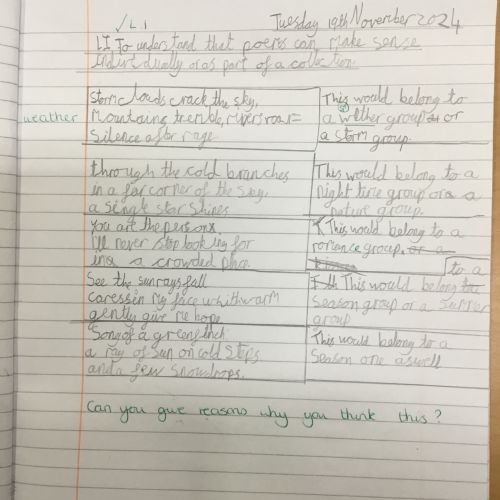 ✓ L I
Tuesday 19th November 2024
LI To understand that poems can make sense
Individually or as part of a collection.
Storm clouds crack the sky,
Mountains tremble, rivers roar=
Silence after rage
weather
This would belong to
a wether group or
a storm group.
through the cold branches
in a far corner of the sky,
a single star shines
This would belong to a
night time group or a
nature group.
You are the person
I'll never stop looking for
in a crowded place.
This would belong to a
romance group, or a
See the sun rays fall
caressin my face whith warm
gently give me hope
This would belong to a
Season group or a Summer
group
Song of a greenfinch
a ray of sun on cold steps
and a few snowdrops.
This would belong to a
Season one aswell
Can you give reasons why you think this?